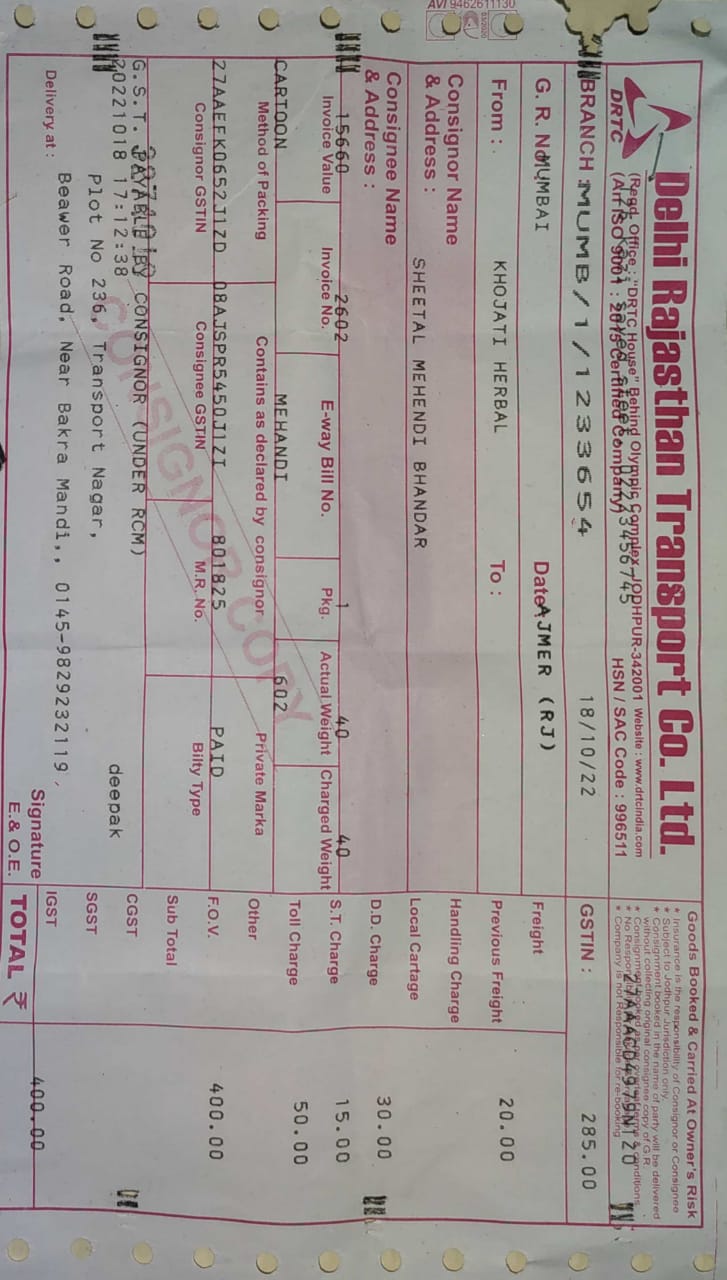 AVI 9462611130
Delhi Rajasthan Transport Co. Ltd.
DRTC
(Regd. Office : "DRTC House" Behind Olympic Complex JODHPUR-342001 Website : www.drtcindia.com
(An ISO 9001 : 2015 Certified Company)
022 23456745
HSN / SAC Code : 996511
BRANCH : MUMB/1/1233654
18/10/22
G. R. No MUMBAI
Date AJMER (RJ)
From : KHOJATI HERBAL
To :
Consignor Name & Address :
SHEETAL MEHENDI BHANDAR
Consignee Name & Address :
15660 2602 1 40 40
Invoice Value Invoice No. E-way Bill No. Pkg. Actual Weight Charged Weight
CARTOON MEHANDI 602
Method of Packing Contains as declared by consignor Private Marka
27AAEFK0652J1ZD 08AJSPR5450J1ZI 801825 PAID
Consignor GSTIN Consignee GSTIN M.R. No. Bilty Type
CONSIGNOR COPY
G.S.T. PAYABLE BY CONSIGNOR (UNDER RCM)
20221018 17:12:38
deepak
Plot No 236, Transport Nagar,
Delivery at : Beawer Road, Near Bakra Mandi,, 0145-9829232119,
Signature
E. & O.E.
Goods Booked & Carried At Owner's Risk
* Insurance is the responsibility of Consignor or Consignee
* Subject to Jodhpur Jurisdiction only.
* Consignment booked in the name of party will be delivered
without collecting original consignee copy of G.R.
* Consignment booked & conditions
* No Respon
* Company is not Responsible for re-booking
27AAACD4979N1Z0
GSTIN : 285.00
Freight
Previous Freight 20.00
Handling Charge
Local Cartage
D.D. Charge 30.00
S.T. Charge 15.00
Toll Charge 50.00
Other
F.O.V. 400.00
Sub Total
CGST
SGST
IGST
TOTAL ₹ 400.00